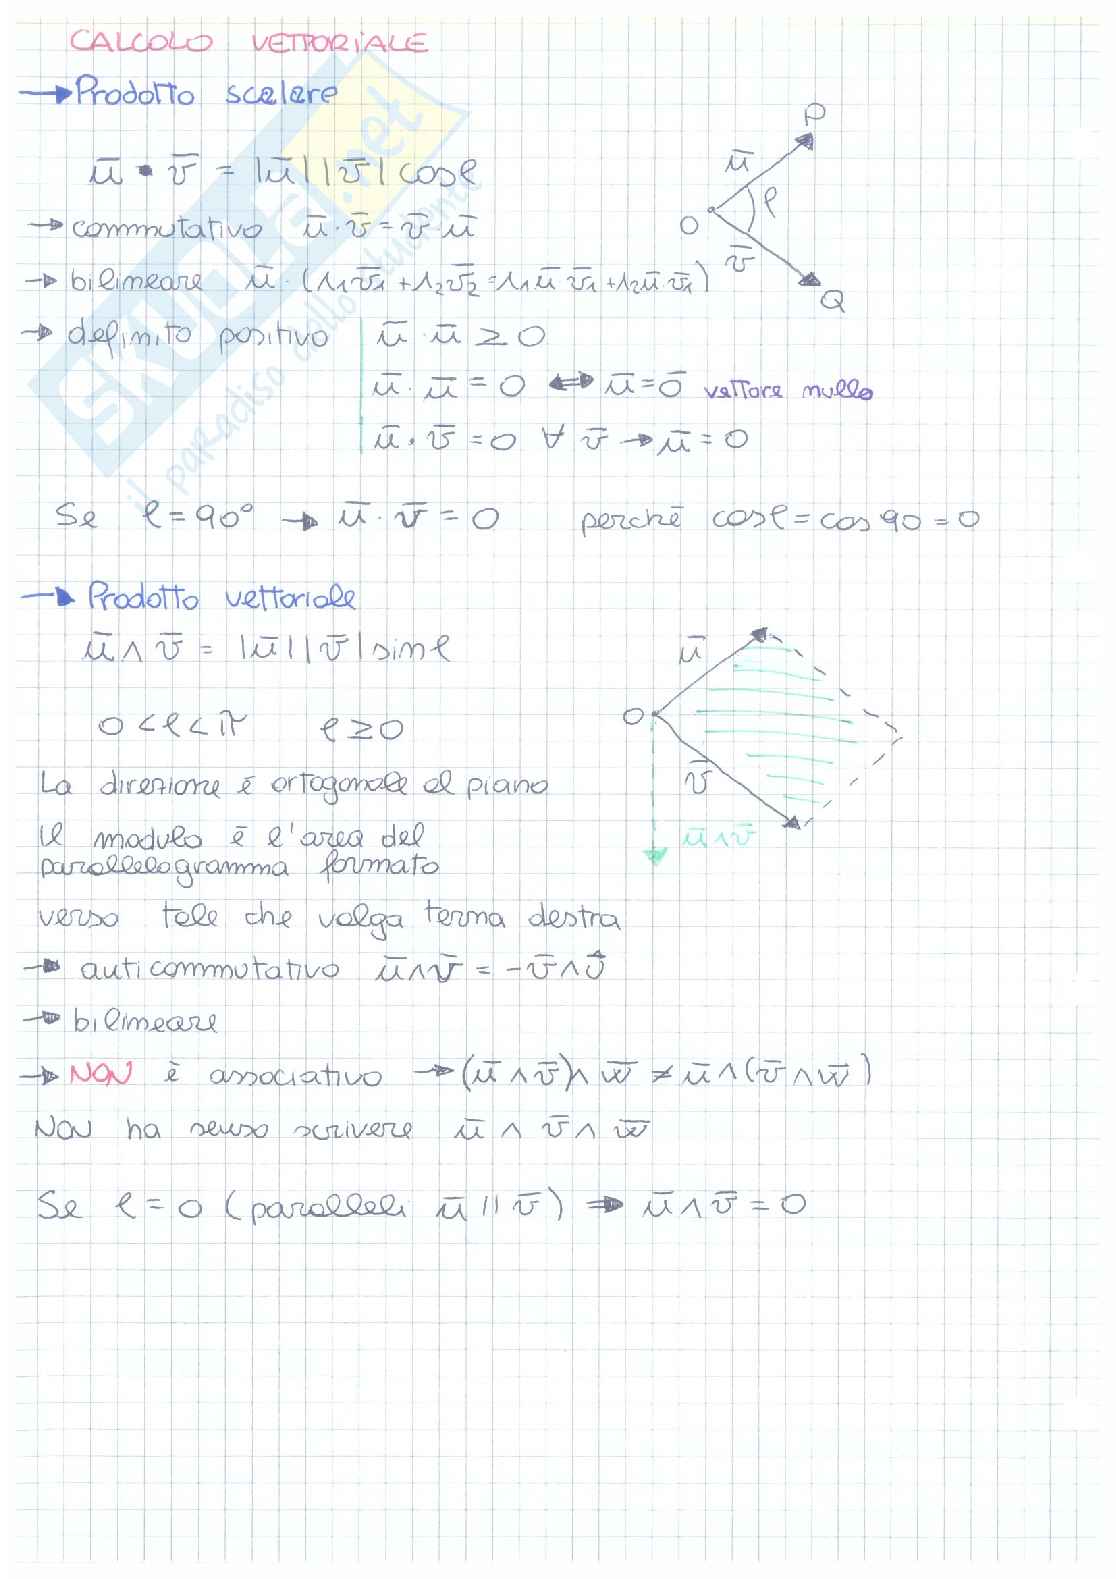 CALCOLO VETTORIALE
→ Prodotto scalare
ū · v̄ = |ū| |v̄| cosφ
→ commutativo ū · v̄ = v̄ · ū
→ bilineare ū · (λ₁v̄₁ + λ₂v̄₂ = λ₁ū v̄₁ + λ₂ū v̄₁)
→ definito positivo ū · ū ≥ 0
ū · ū = 0 ⟺ ū = ō vettore nullo
ū · v̄ = 0 ∀ v̄ → ū = 0
P
ū
O φ
v̄
Q
Se φ = 90° → ū · v̄ = 0 perchē cosφ = cos 90 = 0
→ Prodotto vettoriale
ū ∧ v̄ = |ū| |v̄| sinφ
0 < φ < π φ ≥ 0
La direzione ē ortogonale al piano
Il modulo ē l'area del
parallelogramma formato
verso tale che valga terna destra
ū
O
v̄
ū ∧ v̄
→ anticommutativo ū ∧ v̄ = - v̄ ∧ ū
→ bilineare
→ NON è associativo → (ū ∧ v̄) ∧ w̄ ≠ ū ∧ (v̄ ∧ w̄)
NON ha senso scrivere ū ∧ v̄ ∧ w̄
Se φ = 0 (paralleli ū // v̄) ⇒ ū ∧ v̄ = 0
SKUOLA.net
il paradiso dello studente